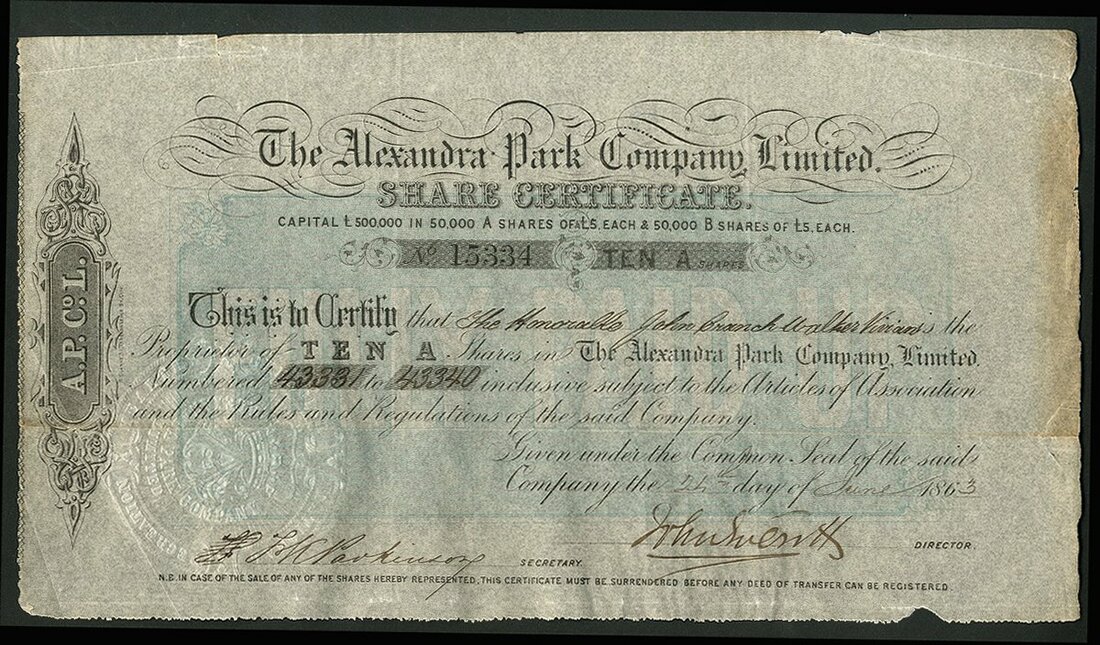 The Alexandra Park Company, Limited.
SHARE CERTIFICATE.
CAPITAL £500,000 IN 50,000 A SHARES OF £5, EACH & 50,000 B SHARES OF £5, EACH.
No 15334 TEN A SHARES
A.P. Co. L.
This is to Certify that The Honorable John Cranch Walker Vivian is the
Proprietor of TEN A Shares in The Alexandra Park Company, Limited.
Numbered 43331 to 43340 inclusive subject to the Articles of Association
and the Rules and Regulations of the said Company.
Given under the Common Seal of the said
Company the 24th day of June 1863
Parkinson SECRETARY.
John Everitt DIRECTOR.
N.B. IN CASE OF THE SALE OF ANY OF THE SHARES HEREBY REPRESENTED, THIS CERTIFICATE MUST BE SURRENDERED BEFORE ANY DEED OF TRANSFER CAN BE REGISTERED.